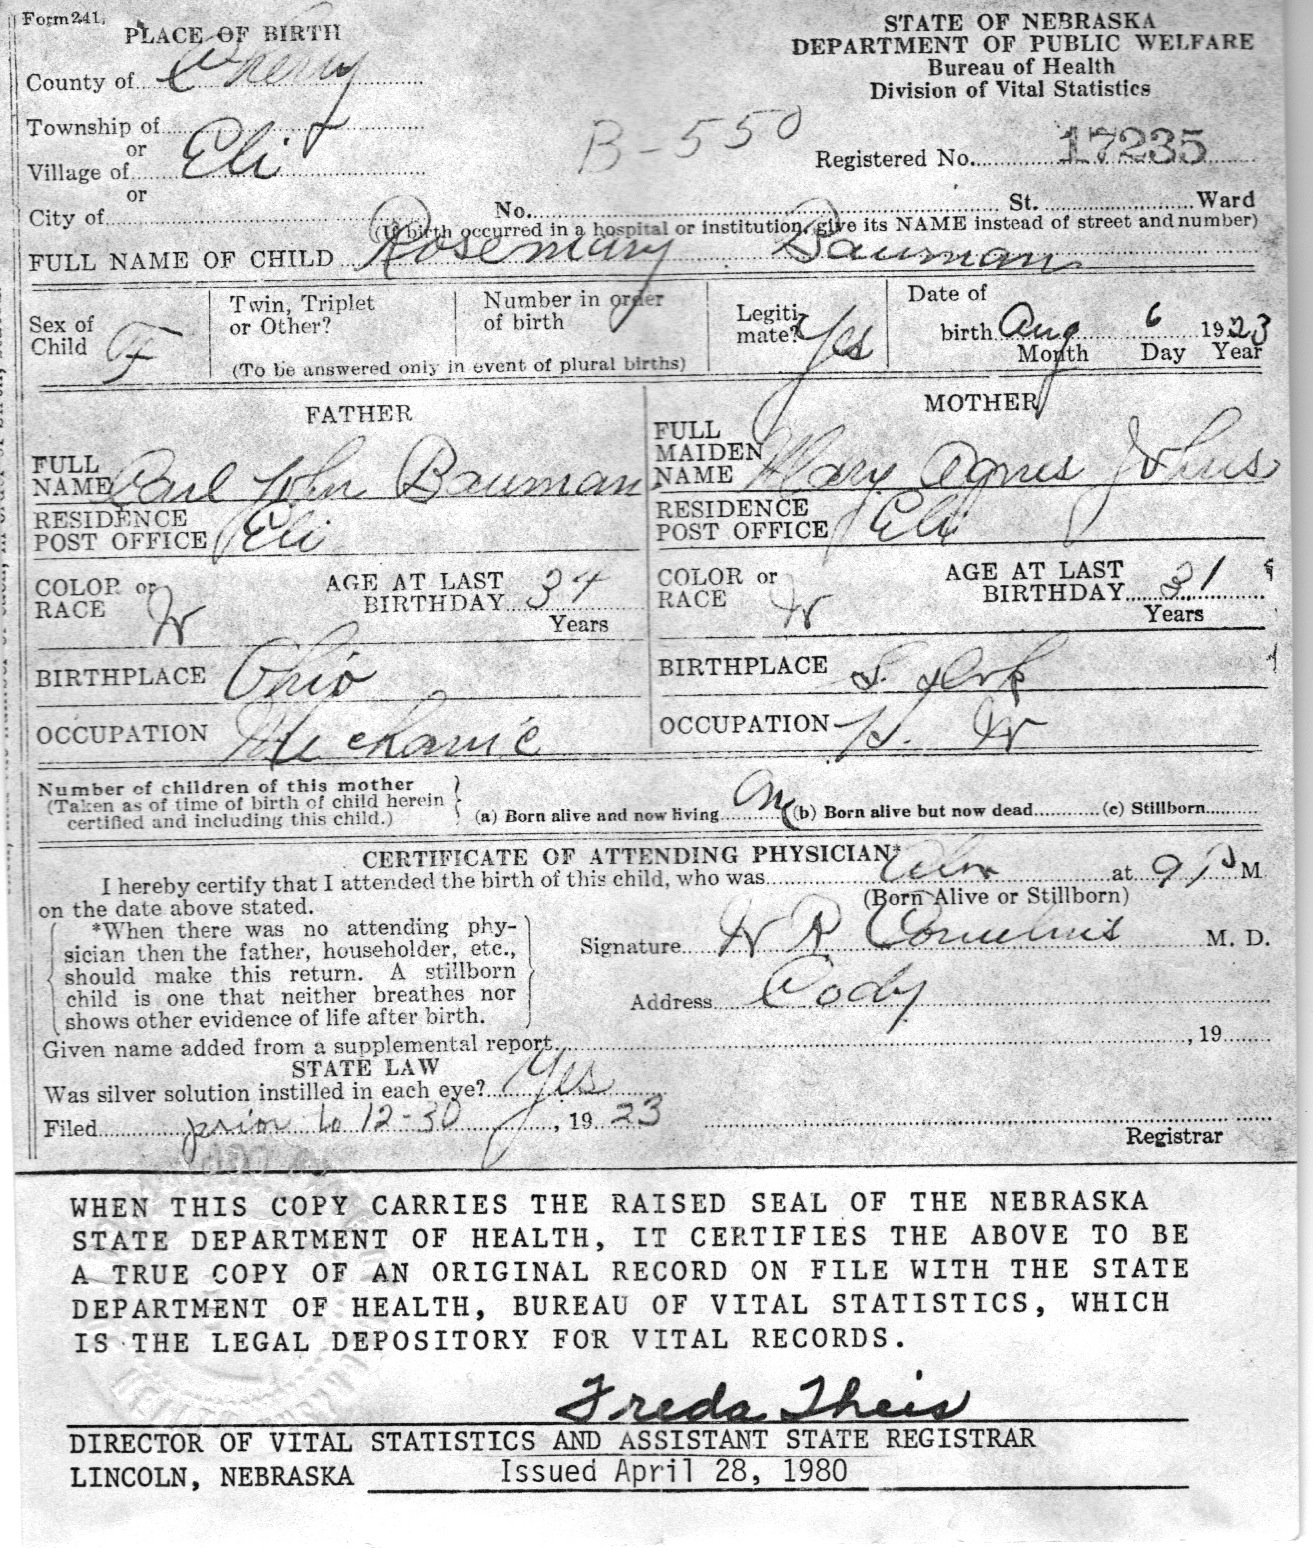 Form 241.
PLACE OF BIRTH
County of Cherry
Township of
or
Village of Eli
or
City of
STATE OF NEBRASKA
DEPARTMENT OF PUBLIC WELFARE
Bureau of Health
Division of Vital Statistics
B-550
Registered No. 17235
No. St. Ward
(If birth occurred in a hospital or institution, give its NAME instead of street and number)
FULL NAME OF CHILD Rosemary Bauman
Sex of Child F
Twin, Triplet or Other?
Number in order of birth
(To be answered only in event of plural births)
Legitimate? Yes
Date of birth Aug 6 1923
Month Day Year
FATHER
FULL NAME Carl John Bauman
RESIDENCE POST OFFICE Eli
COLOR or RACE W
AGE AT LAST BIRTHDAY 34
Years
BIRTHPLACE Ohio
OCCUPATION Mechanic
MOTHER
FULL MAIDEN NAME Mary Agnes Johns
RESIDENCE POST OFFICE Eli
COLOR or RACE W
AGE AT LAST BIRTHDAY 31
Years
BIRTHPLACE S. Dok
OCCUPATION H. W
Number of children of this mother
(Taken as of time of birth of child herein
certified and including this child.)
(a) Born alive and now living One (b) Born alive but now dead (c) Stillborn
CERTIFICATE OF ATTENDING PHYSICIAN*
I hereby certify that I attended the birth of this child, who was at 9 P M
(Born Alive or Stillborn)
on the date above stated.
*When there was no attending phy-
sician then the father, householder, etc.,
should make this return. A stillborn
child is one that neither breathes nor
shows other evidence of life after birth.
Signature W R Cornelius M. D.
Address Cody
Given name added from a supplemental report , 19
STATE LAW
Was silver solution instilled in each eye? Yes
Filed prior to 12-30, 1923
Registrar
WHEN THIS COPY CARRIES THE RAISED SEAL OF THE NEBRASKA
STATE DEPARTMENT OF HEALTH, IT CERTIFIES THE ABOVE TO BE
A TRUE COPY OF AN ORIGINAL RECORD ON FILE WITH THE STATE
DEPARTMENT OF HEALTH, BUREAU OF VITAL STATISTICS, WHICH
IS THE LEGAL DEPOSITORY FOR VITAL RECORDS.
Freda Theis
DIRECTOR OF VITAL STATISTICS AND ASSISTANT STATE REGISTRAR
LINCOLN, NEBRASKA Issued April 28, 1980